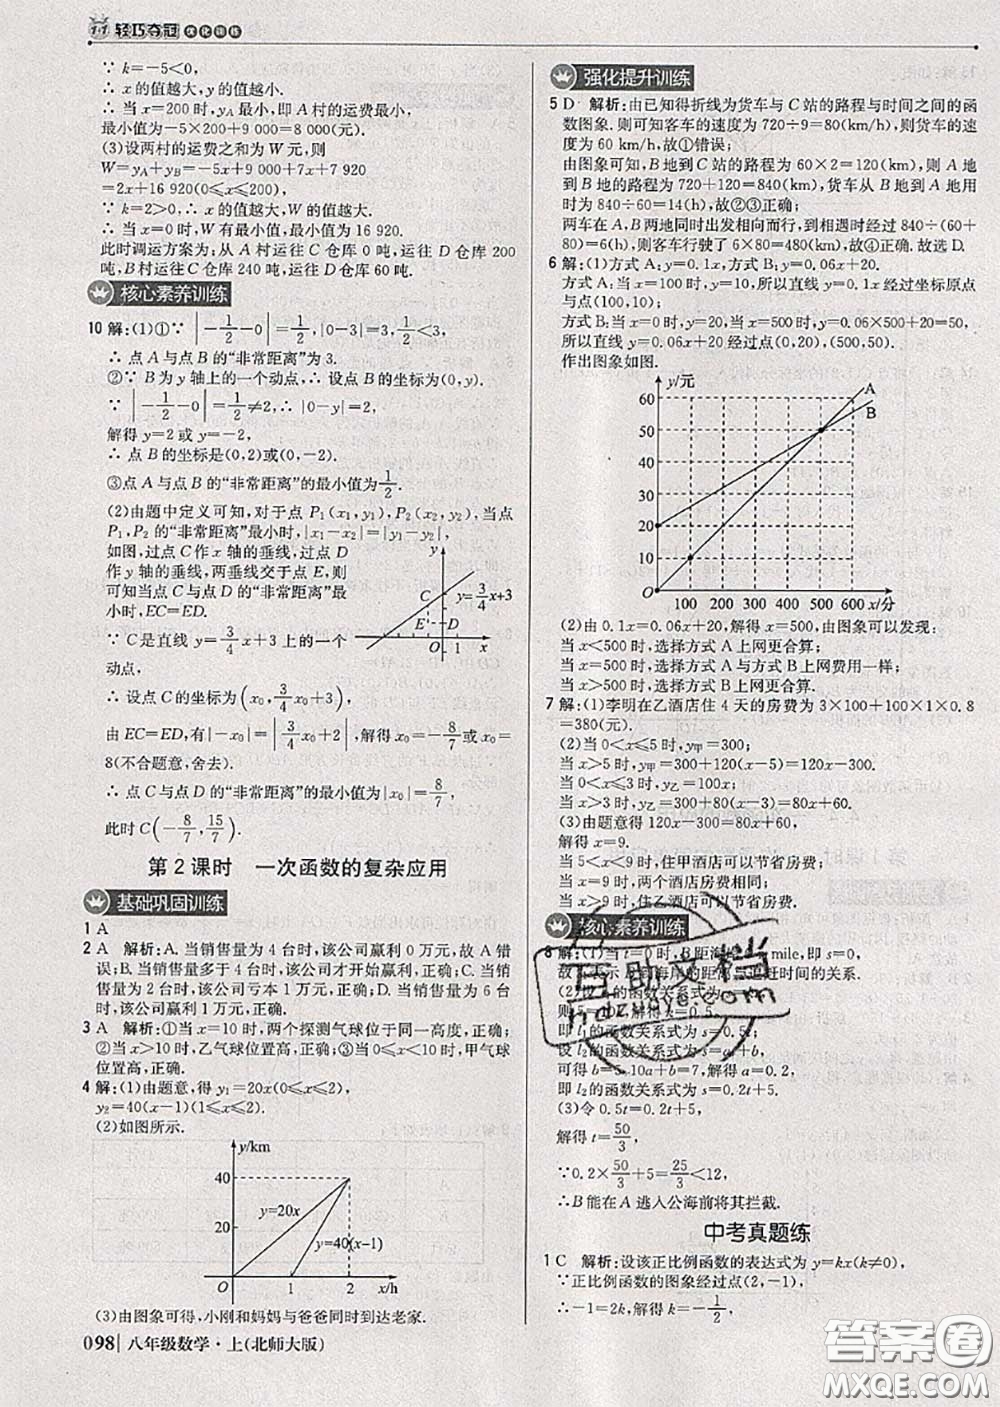 1+1 轻巧夺冠 优化训练
∵ k=-5<0,
∴ x 的值越大, y 的值越小.
∴ 当 x=200 时, yA 最小, 即 A 村的运费最小,
最小值为-5×200+9 000=8 000(元).
(3)设两村的运费之和为 W 元, 则
W=yA+yB=-5x+9 000+7x+7 920
=2x+16 920(0≤x≤200),
∵ k=2>0, ∴ x 的值越大, W 的值越大.
∴ 当 x=0 时, W 有最小值, 最小值为 16 920.
此时调运方案为: 从 A 村运往 C 仓库 0 吨, 运往 D 仓库 200
吨, B 村运往 C 仓库 240 吨, 运往 D 仓库 60 吨.
核心素养训练
10 解:(1)①∵ |-1/2-0|=1/2, |0-3|=3, 1/2<3,
∴ 点 A 与点 B 的“非常距离”为 3.
②∵ B 为 y 轴上的一个动点, ∴ 设点 B 的坐标为(0, y).
∵ |-1/2-0|=1/2≠2, ∴ |0-y|=2,
解得 y=2 或 y=-2,
∴ 点 B 的坐标是(0,2)或(0,-2).
③点 A 与点 B 的“非常距离”的最小值为1/2.
(2)由题中定义可知, 对于点 P1(x1, y1), P2(x2, y2), 当点
P1, P2 的“非常距离”最小时, |x1-x2|=|y1-y2|,
如图, 过点 C 作 x 轴的垂线, 过点 D
作 y 轴的垂线, 两垂线交于点 E, 则
可知当点 C 与点 D 的“非常距离”最
小时, EC=ED.
∵ C 是直线 y=3/4x+3 上的一个
动点,
y
y=3/4x+3
C
E
D
O 1
x
∴ 设点 C 的坐标为(x0, 3/4x0+3),
由 EC=ED, 有|-x0|=|3/4x0+2|, 解得 x0=-8/7或 x0=
8(不合题意, 舍去).
∴ 点 C 与点 D 的“非常距离”的最小值为|x0|=8/7,
此时 C(-8/7, 15/7).
第 2 课时 一次函数的复杂应用
基础巩固训练
1 A
2 A 解析: A. 当销售量为 4 台时, 该公司赢利 0 万元, 故 A 错
误; B. 当销售量多于 4 台时, 该公司才开始赢利, 正确; C. 当销
售量为 2 台时, 该公司亏本 1 万元, 正确; D. 当销售量为 6 台
时, 该公司赢利 1 万元, 正确.
3 A 解析: ①当 x=10 时, 两个探测气球位于同一高度, 正确;
②当 x>10 时, 乙气球位置高, 正确; ③当 0≤x<10 时, 甲气球
位置高, 正确.
4 解:(1)由题意, 得 y1=20x(0≤x≤2).
y2=40(x-1)(1≤x≤2).
(2)如图所示.
y/km
40
20
y=20x
y=40(x-1)
O 1 2 x/h
(3)由图象可得, 小刚和妈妈与爸爸同时到达老家.
098 八年级数学·上(北师大版)
强化提升训练
5 D 解析: 由已知得折线为货车与 C 站的路程与时间之间的函
数图象. 则可知客车的速度为 720÷9=80(km/h), 则货车的速
度为 60 km/h, 故①错误;
由图象可知, B 地到 C 站的路程为 60×2=120(km), 则 A 地
到 B 地的路程为 720+120=840(km), 货车从 B 地到 A 地用
时为 840÷60=14(h), 故②③正确;
两车在 A, B 两地同时出发相向而行, 到相遇时经过 840÷(60+
80)=6(h), 则客车行驶了 6×80=480(km), 故④正确. 故选 D.
6 解:(1)方式 A: y=0.1x, 方式 B: y=0.06x+20.
方式 A: 当 x=100 时, y=10, 所以直线 y=0.1x 经过坐标原点
与点(100,10);
方式 B: 当 x=0 时, y=20, 当 x=500 时, y=0.06×500+20=50,
所以直线 y=0.06x+20 经过点(0,20), (500,50).
作出图象如图.
y/元
60
50
40
30
20
10
A
B
O 100 200 300 400 500 600 x/分
(2)由 0.1x=0.06x+20, 解得 x=500, 由图象可以发现:
当 x<500 时, 选择方式 A 上网更合算;
当 x=500 时, 选择方式 A 与方式 B 上网费用一样;
当 x>500 时, 选择方式 B 上网更合算.
7 解:(1)李明在乙酒店住 4 天的房费为 3×100+100×1×0.8
=380(元).
(2)当 0<x≤5 时, y甲=80x;
当 x>5 时, y甲=300+120(x-5)=120x-300.
当 0<x≤3 时, y乙=100x;
当 x>3 时, y乙=300+80(x-3)=80x+60.
(3)由题意得
解得 x=9.
当 x<9 时, 住甲酒店可以节省房费;
当 x=9 时, 两个酒店房费相同;
当 x>9 时, 住乙酒店可以节省房费.
核心素养训练
8 解:(1)当 t=0 时, B 距海岸 0 n mile, 即 s=0,
故 l1 表示 B 到海岸的距离与追赶时间的关系.
(2)设 l1 的函数关系式为
则 解得 k=0.5,
即 l1 的函数关系式为 s=0.5t;
设 l2 的函数关系式为 s=at+b,
可得 b=5, 10a+b=7, 解得 a=0.2,
即 l2 的函数关系式为 s=0.2t+5.
(3)令 0.5t=0.2t+5,
解得 t=50/3,
∵0.2×50/3+5=25/3<12,
∴B 能在 A 逃入公海前将其拦截.
中考真题练
1 C 解析: 设该正比例函数的表达式为 y=kx(k≠0),
∵正比例函数的图象经过点(2,-1),
∴-1=2k, 解得 k=-1/2,
互助文档
hdzuoye.com
答案圈
MXQE.COM